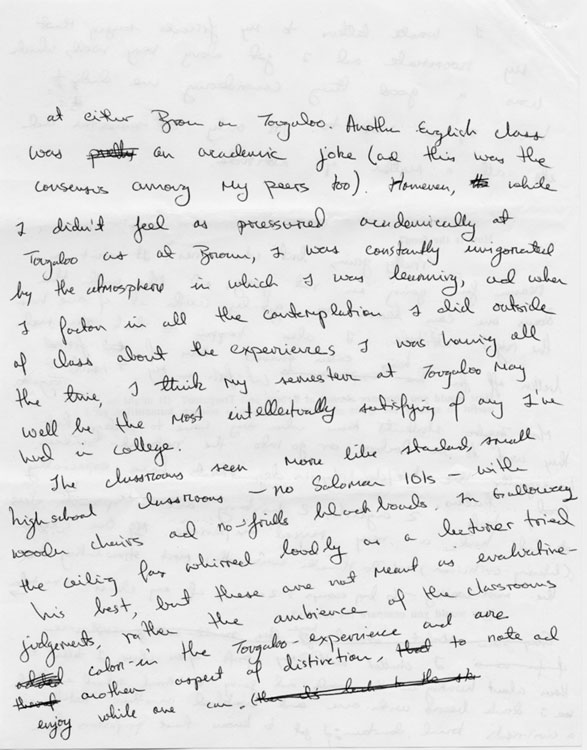 at either Brown or Tougaloo. Another English class
was pretty an academic joke (and this was the
consensus among my peers too). However, the while
I didn't feel as pressured academically at
Tougaloo as at Brown, I was constantly invigorated
by the atmosphere in which I was learning, and when
I factor in all the contemplation I did outside
of class about the experiences I was having all
the time, I think my semester at Tougaloo may
well be the most intellectually satisfying of any I've
had in college.
The classrooms seem more like standard, small
high school classrooms – no Saloman 101s – with
wooden chairs and no-frills blackboards. In Galloway
the ceiling fan whirred loudly as a lecturer tried
his best, but these are not meant as evaluative
judgements, rather the ambience of the classrooms
added color in the Tougaloo experience and are
another aspect of distinction that to note and
enjoy while one can. (